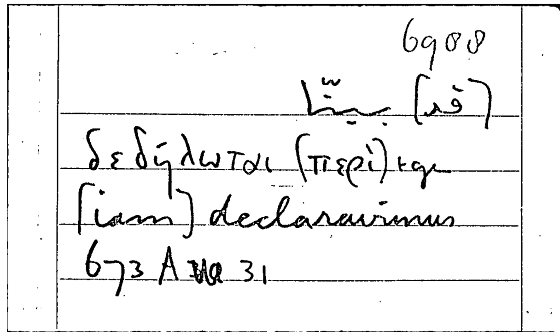 6988
[قد] بيّنّا
δεδήλωται (περὶ) + gen
[iam] declaravimus
673 A 31